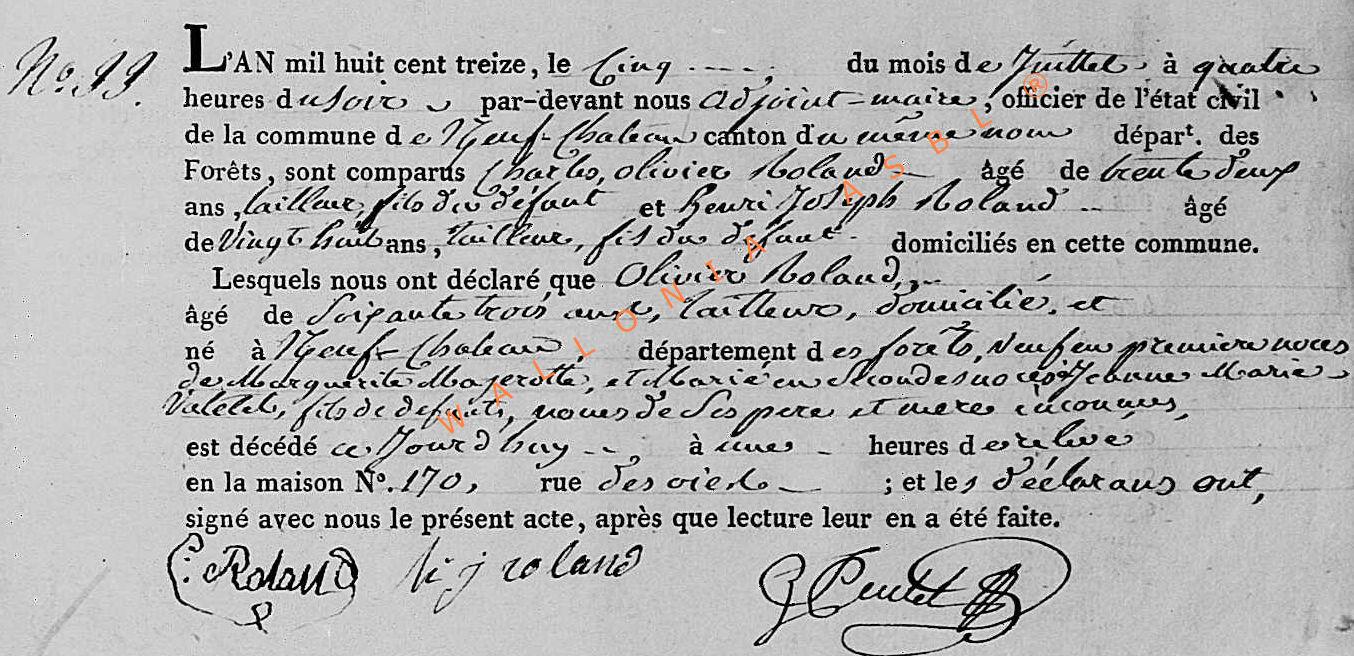 No. 99. L'AN mil huit cent treize, le Cinq du mois de Juillet à quatre
heures du soir par-devant nous adjoint-maire, officier de l'état civil
de la commune de Neuf-Chateau canton du même nom dépar.t des
Forêts, sont comparus Charles, olivier Roland âgé de trente deux
ans, tailleur, fils du défunt et henri Joseph Roland âgé
de Vingt huit ans, tailleur, fils du défunt domiciliés en cette commune.
Lesquels nous ont déclaré que Olivier Roland,
âgé de Soixante trois ans, tailleur, domicilié, et
né à Neuf-Chateau, département des forêts, veuf en premiere noces
de Marguerite Majerotte, et Marié en secondes noces Jeanne Marie
fils de defunts, noms de ses pere et mere inconnus,
est décédé ce Jourd'huy à une heures de releve
en la maison N.o 170, rue ; et les déclarans ont,
signé avec nous le présent acte, après que lecture leur en a été faite.
C. Roland h j roland
WALLONIA ASBL ®